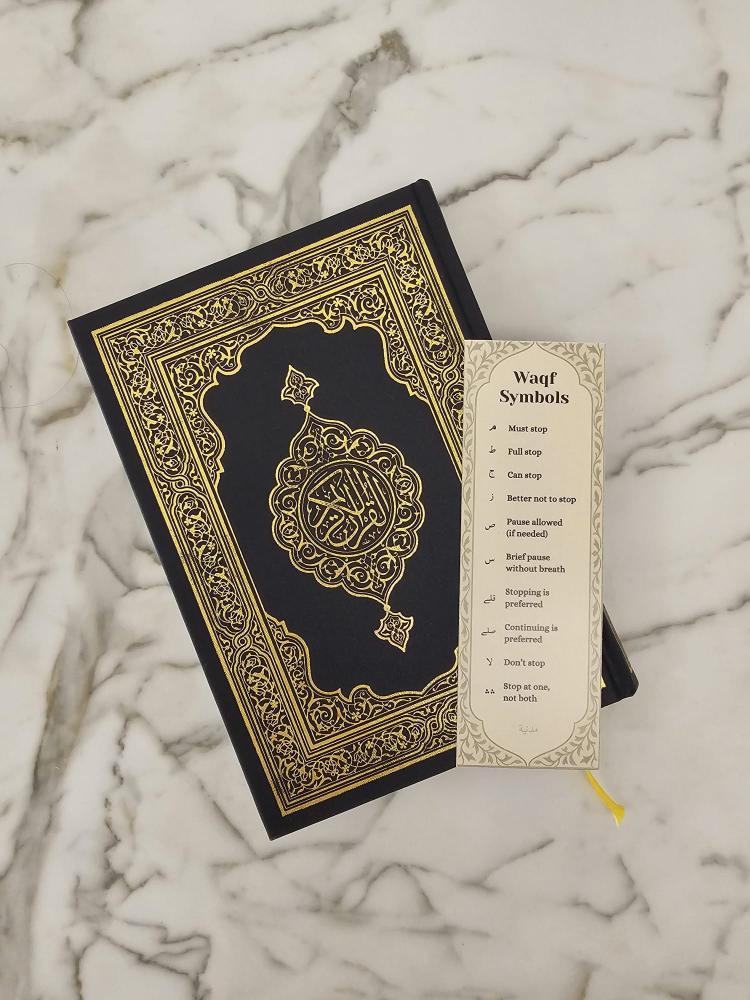 القرآن الكريم
Waqf
Symbols
مـ Must stop
ط Full stop
ج Can stop
ز Better not to stop
ص Pause allowed
(if needed)
س Brief pause
without breath
قلے Stopping is
preferred
صلے Continuing is
preferred
لا Don't stop
∴ ∴ Stop at one,
not both
مدنية